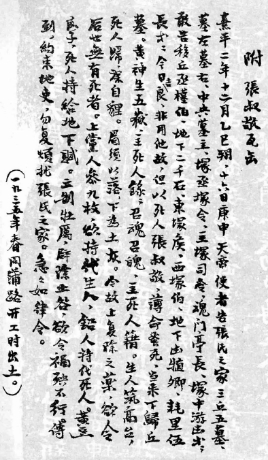 附 張叔敬瓦缶
熹平二年十二月乙巳朔十六日庚申天帝使者告張氏之家三丘五墓、
墓左墓右中央墓主、塚丞塚令、主塚司令、魂門亭長、塚中游击等,
敢告移丘丞墓伯、地下二千石、東塚侯、西塚伯、地下击犆卿、耗里伍
長等:今日吉良,非用他故,但以死人張叔敬,薄命蚤死,當來下歸丘
墓。黃神生五嶽,主死人錄,召魂召魄,主死人籍。生人築高台,
死人歸深自貍。眉須以落下為土灰。今故上復除之藥,欲令
后世無有死者。上党人參九枚欲持代生人,鉛人持代死人。黃豆
瓜子,死人持給地下賦。立制牡厲,辟除土咎,欲令禍殃不行。傳
到,約束地吏,勿复煩扰張氏之家。急急如律令。
(一九三五年春同蒲路开工时出土。)